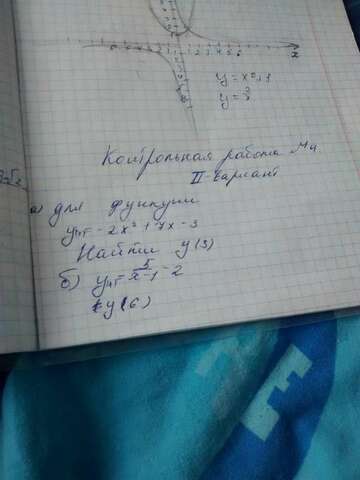 x
y = x² + 1
Контрольная работа №4
II - вариант
а) Для функции
y = - 2x² + 7x - 3
Найти y(3)
б) y = 5/x-1 - 2
y(6)